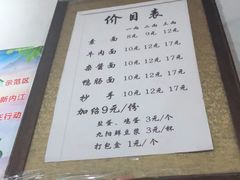 价目表
一两 二两 三两
素面 8元 10元 12元
牛肉面 10元 12元 17元
杂酱面 10元 12元 17元
鸭肠面 10元 12元 17元
抄手 10元 12元 17元
加给9元/份
盐蛋、鸡蛋 3元/个
九阳鲜豆浆 3元/杯
打包盒 1元/个
示范区
新内江
行动